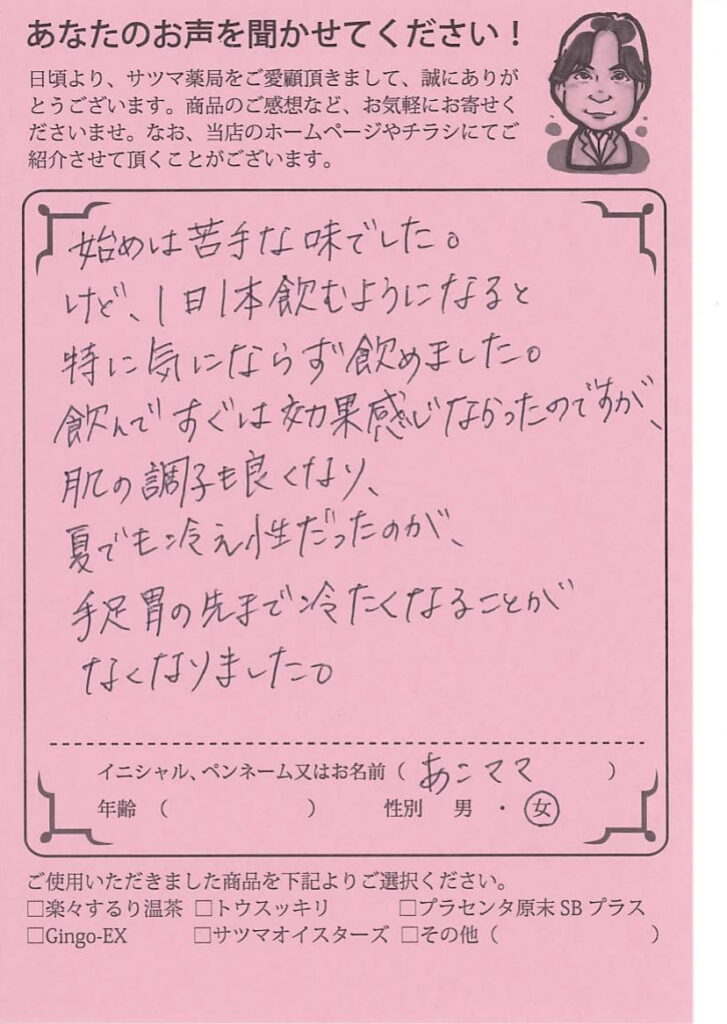 あなたのお声を聞かせてください！
日頃より、サツマ薬局をご愛顧頂きまして、誠にありが
とうございます。商品のご感想など、お気軽にお寄せく
ださいませ。なお、当店のホームページやチラシにてご
紹介させて頂くことがございます。
始めは苦手な味でした。
けど、1日1本飲むようになると
特に気にならず飲めました。
飲んですぐは効果感じなかったのですが、
肌の調子も良くなり、
夏でも冷え性だったのが、
手足胃の先まで冷たくなることが
なくなりました。
イニシャル、ペンネーム又はお名前（ あこママ ）
年齢 （ ） 性別 男 ・ 女
ご使用いただきました商品を下記よりご選択ください。
□楽々するり温茶 □トウスッキリ □プラセンタ原末 SB プラス
□Gingo-EX □サツマオイスターズ □その他（ ）